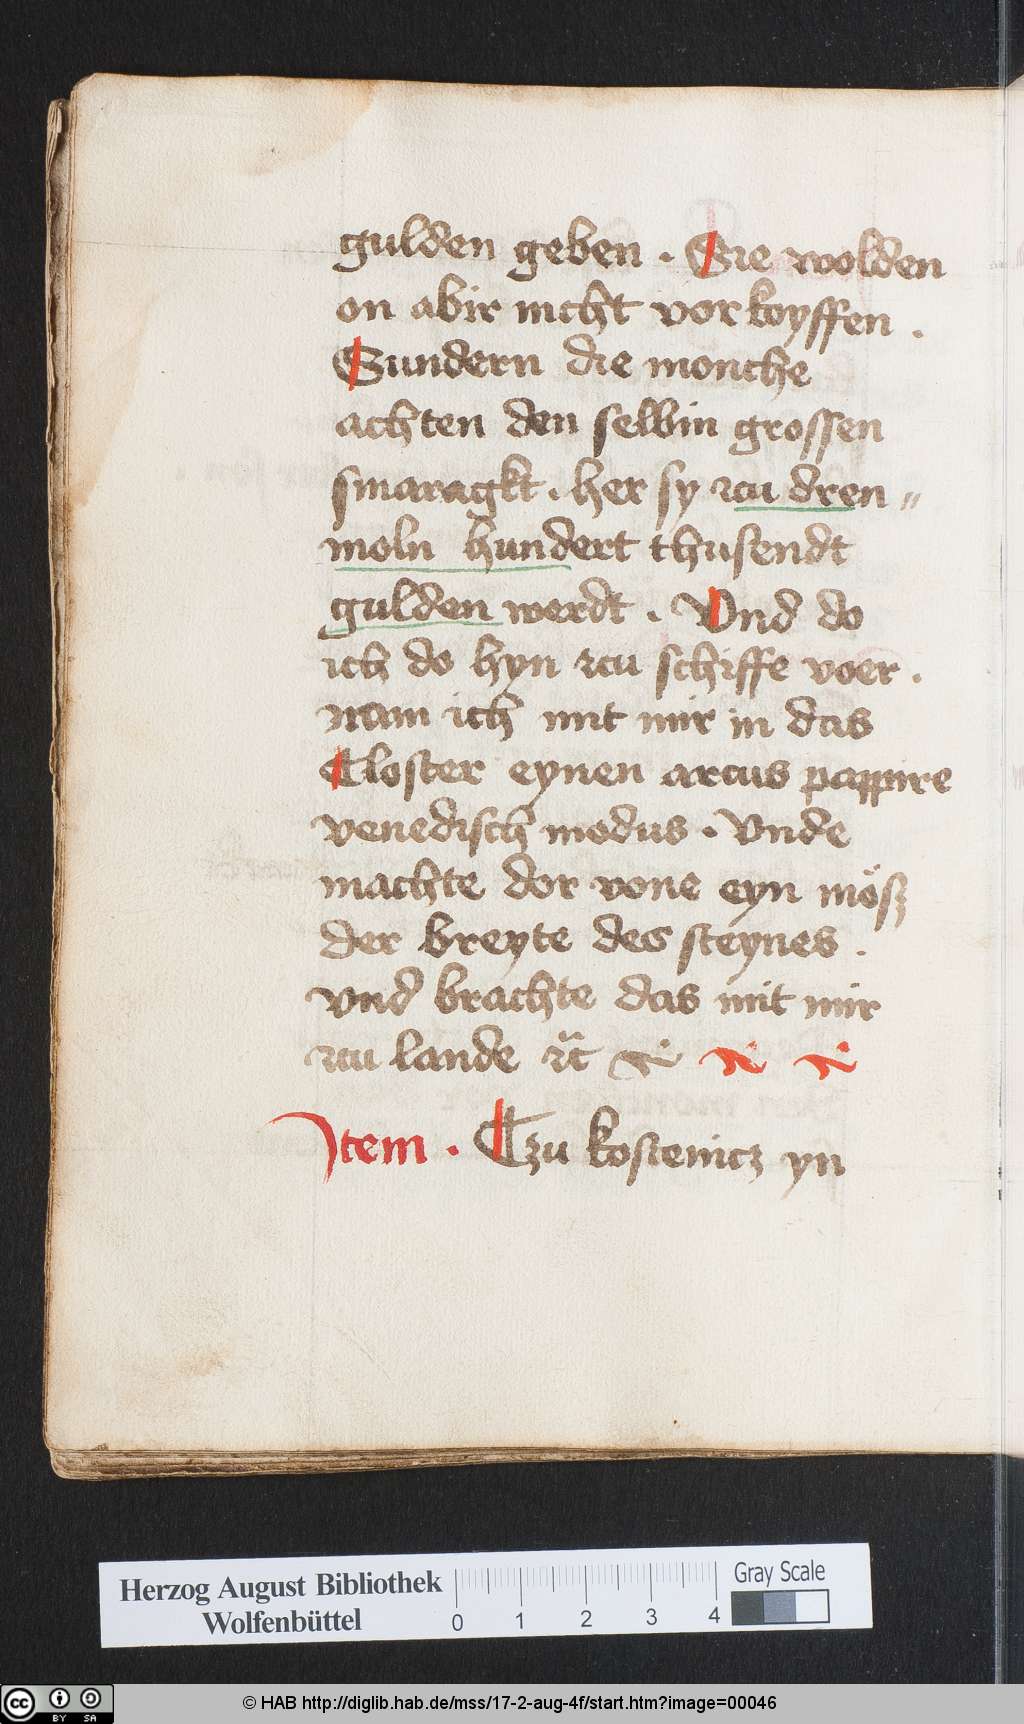 gulden geben . Sie wolden
on abir nicht vorkoyffen .
Sundern die monche
achten den selbin grossen
smaragkt . her sy zcu dren〃
moln hundert thusendt
gulden werdt . Und do
ich do hyn zcu schiffe voer .
nam ich mit mir in das
Closter eynen arcus pappire
venedisch modus . Vnde
machte dor vone eyn mösz
der breyte des steynes .
vnd brachte das mit mir
zcu lande
Item . Czu kostenicz yn
Herzog August Bibliothek
Wolfenbüttel
Gray Scale
0 1 2 3 4
cc BY SA
© HAB http://diglib.hab.de/mss/17-2-aug-4f/start.htm?image=00046